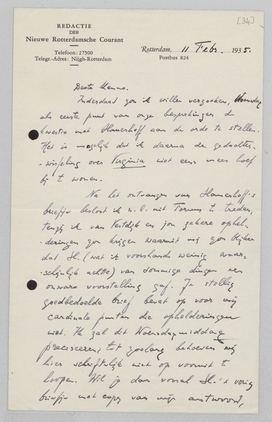 [34]
REDACTIE
DER
Nieuwe Rotterdamsche Courant
Telefoon: 27500
Telegr.-Adres: Nijgh-Rotterdam
Rotterdam, 11 Febr. 1935.
Postbus 824
Beste Menno.
Inderdaad zou ik willen verzoeken, Woensdag
als eerste punt van onze besprekingen de
kwestie met Slauerhoff aan de orde te stellen.
Het is mogelijk dat ik daarna de gedachten-
wisseling over Virginia niet eens meer hoef
bij te wonen.
Na het ontvangen van Slauerhoff's
briefje besloot ik n.l. uit Forum te treden,
tenzij ik van Vestdijk en jou zekere ophel-
deringen zou krijgen waaruit mij zou blijken
dat Sl. (wat ik voorshands weinig waar-
schijnlijk acht) van sommige dingen een
onware voorstelling gaf. Ja stellig
goedbedoelde brief bevat op voor mij
cardinale punten die ophelderingen
niet. Ik zal dit Woensdagmiddag
preciseeren, tot zoolang behoeven wij
hier schriftelijk niet op vooruit te
loopen. Wil je dan vooral Sl.'s vorig
briefje met copy van mijn antwoord,